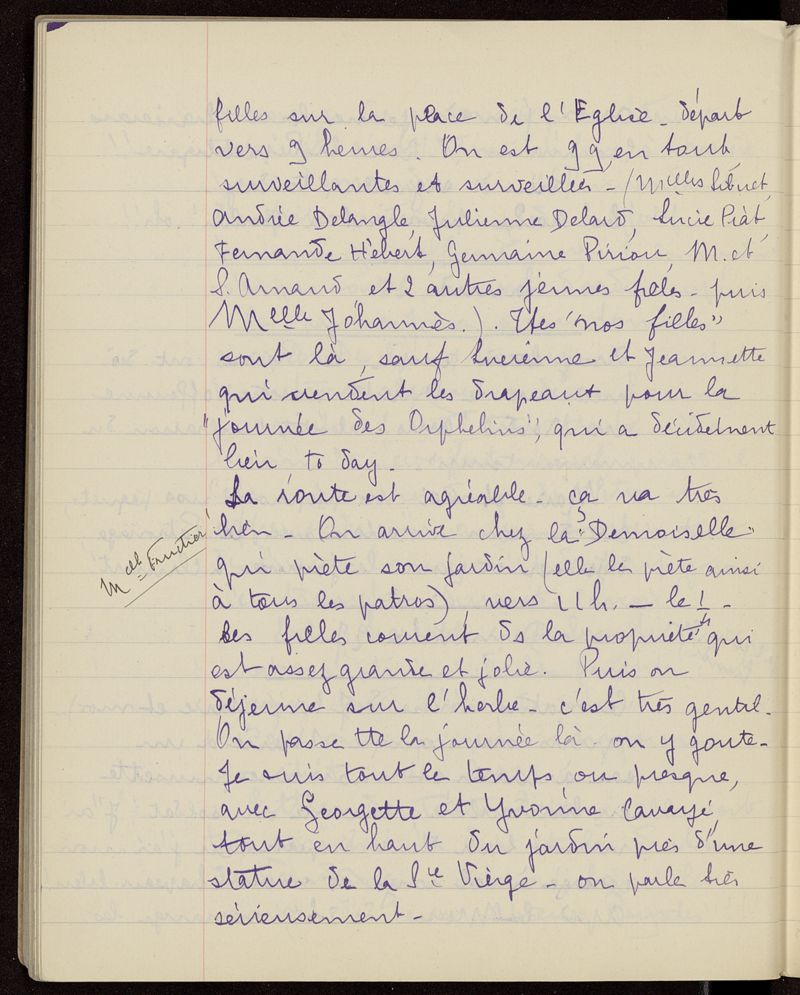 filles sur la place de l'Eglise - départ
vers 9 heures. On est 99 en tout
surveillantes et surveillées - (Melles
Andrée Delangle, Julienne Delard, Lucie Piat,
Fernande Hébert, Germaine Piriou, M. et
S. Arnaud et 2 autres jeunes filles - puis
Melle Johannès.). Ttes "nos filles"
sont là, sauf Lucienne et Jeannette
qui vendent les drapeaux pour la
"journée des Orphelins", qui a décidément
lieu to day.
La route est agréable - ça va très
bien - On arrive chez la "Demoiselle"
Melle Fructier
qui prète son jardin (elle le prète ainsi
à tous les patros), vers 11 h. -
Les filles courent ds la propriété qui
est assez grande et jolie. Puis on
déjeune sur l'herbe - c'est très gentil.
On passe tte la journée là - on y goute -
Je suis tout le temps ou presque,
avec Georgette et Yvonne Cavayé,
tout en haut du jardin près d'une
statue de la Ste Vierge - on parle très
sérieusement -